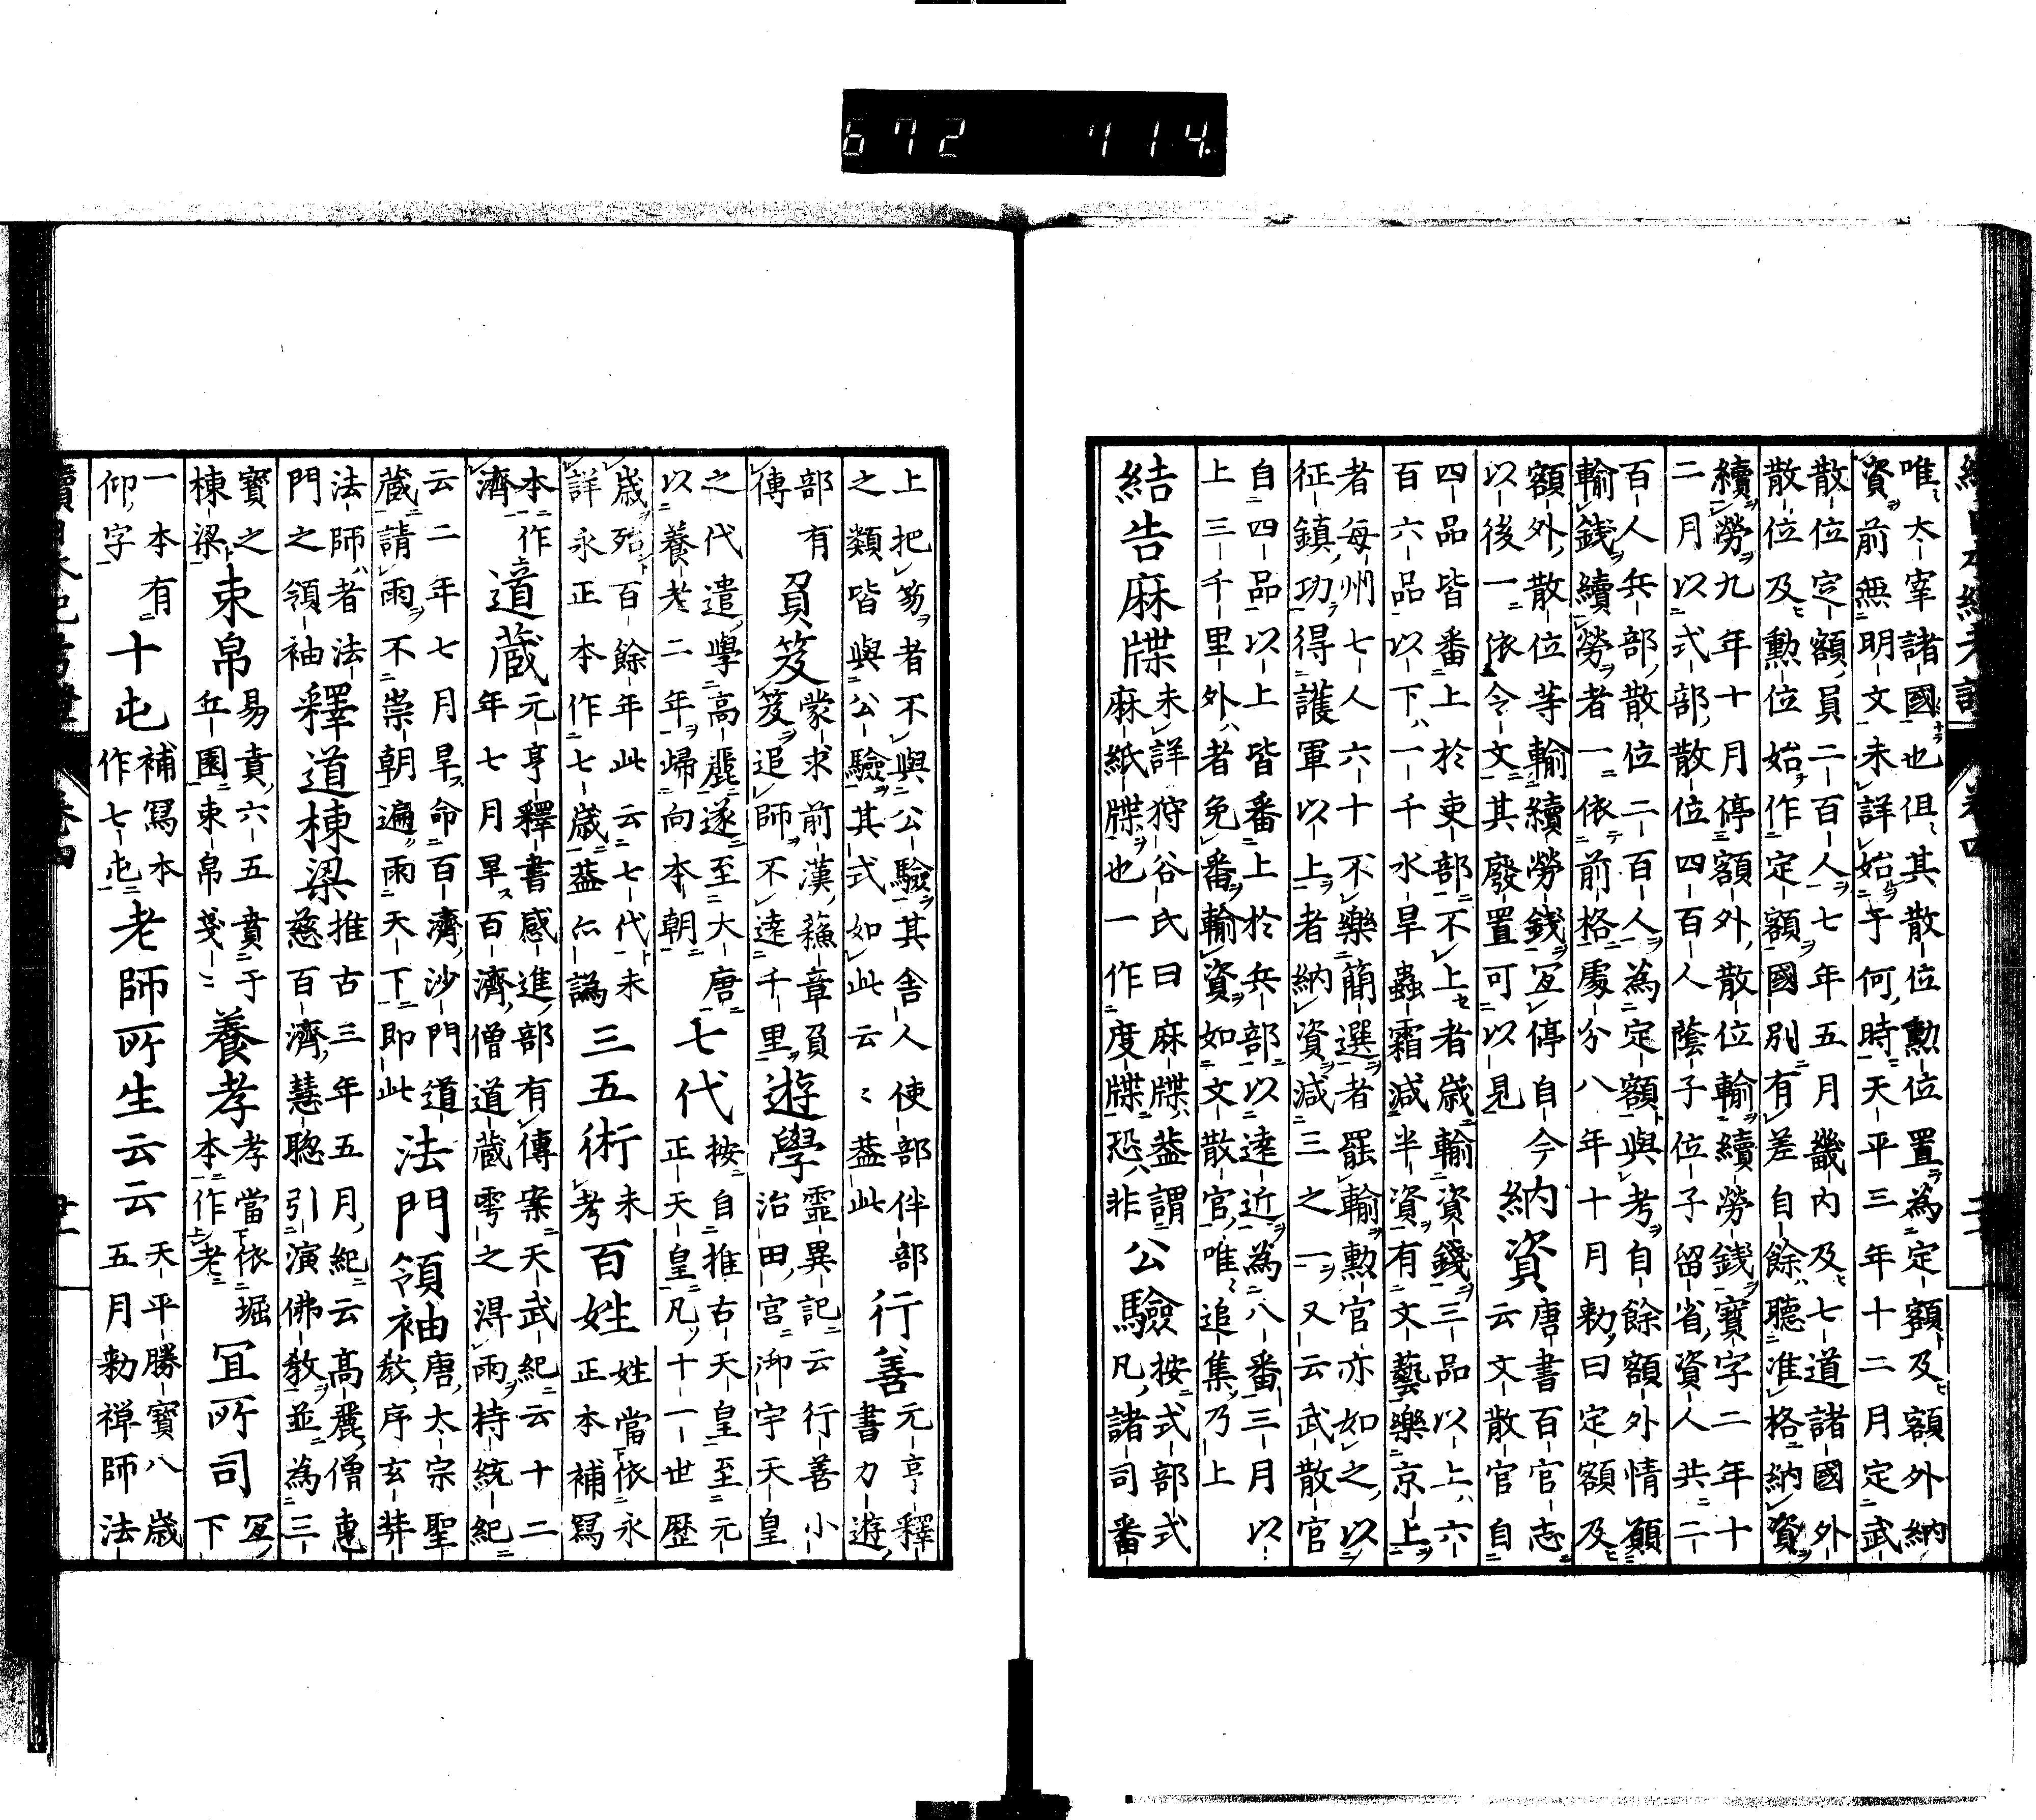 672 714.
唯太宰諸國也但其散位勲位置為定額及額外納
資前無明文未詳始于何時天平三年十二月定武
散位定額員二百人七年五月畿内及七道諸國外
散位及勲位始作定額國別有差自餘聽准格納資
續勞九年十月停額外散位輸續勞銭寶字二年十
二月以式部散位四百人蔭子位子留省資人共二
百人兵部散位二百人為定額與考自餘額外情願
輸銭續勞者一依前格處分八年十月勅曰定額及
額外散位等輸續勞銭宜停自今
以後一依令文其廢置可以見
納資
唐書百官志
云文散官自
四品皆番上於吏部不上者歳輸資錢三品以上六
百六品以下一千水旱蟲霜減半資有文藝樂京上
者每州七人六十不樂簡選者罷輸勲官亦如之以
征鎮功得護軍以上者納資減三之一又云武散官
自四品以上皆番上於兵部以遠近為八番三月以
上三千里外者免番輸資如文散官唯追集乃上
結告麻牒
未詳狩谷氏曰麻牒蓋謂
麻紙牒也一作度牒恐非
公驗
按式部式
凡諸司番
上把笏者不與公驗其舎人使部伴部
之類皆與公驗其式如此云々蓋此
行善
元亨釋
書力遊
部有
傳
負笈
蒙求前漢蘓章負
笈追師不遠千里
遊學
霊異記云行善小
治田宮御宇天皇
之代遣學高麗遂至大唐
以養老二年歸向本朝
七代
按自推古天皇至元
正天皇凡十一世歴
歳殆百餘年此云七代未
詳永正本作七歳蓋亦譌
三五術
未
考
百姓
姓當依永
正本補冩
本作
濟
道蔵
元亨釋書感進部有傳案天武紀云十二
年七月旱百濟僧道蔵雩之得雨持統紀
云二年七月旱命百濟沙門道
蔵請雨不崇朝遍雨天下即此
法門領袖
唐太宗聖
教序玄奘
法師者法
門之領袖
釋道棟梁
推古三年五月紀云高麗僧恵
慈百濟慧聡引演佛教並為三
寳之
棟梁
束帛
易賁六五賁于
丘園束帛戔々
養孝
孝當依堀
本作老
冝所司
冝
下
一本有
仰字
十屯
補冩本
作七屯
老師所生云云
天平勝寳八歳
五月勅禅師法